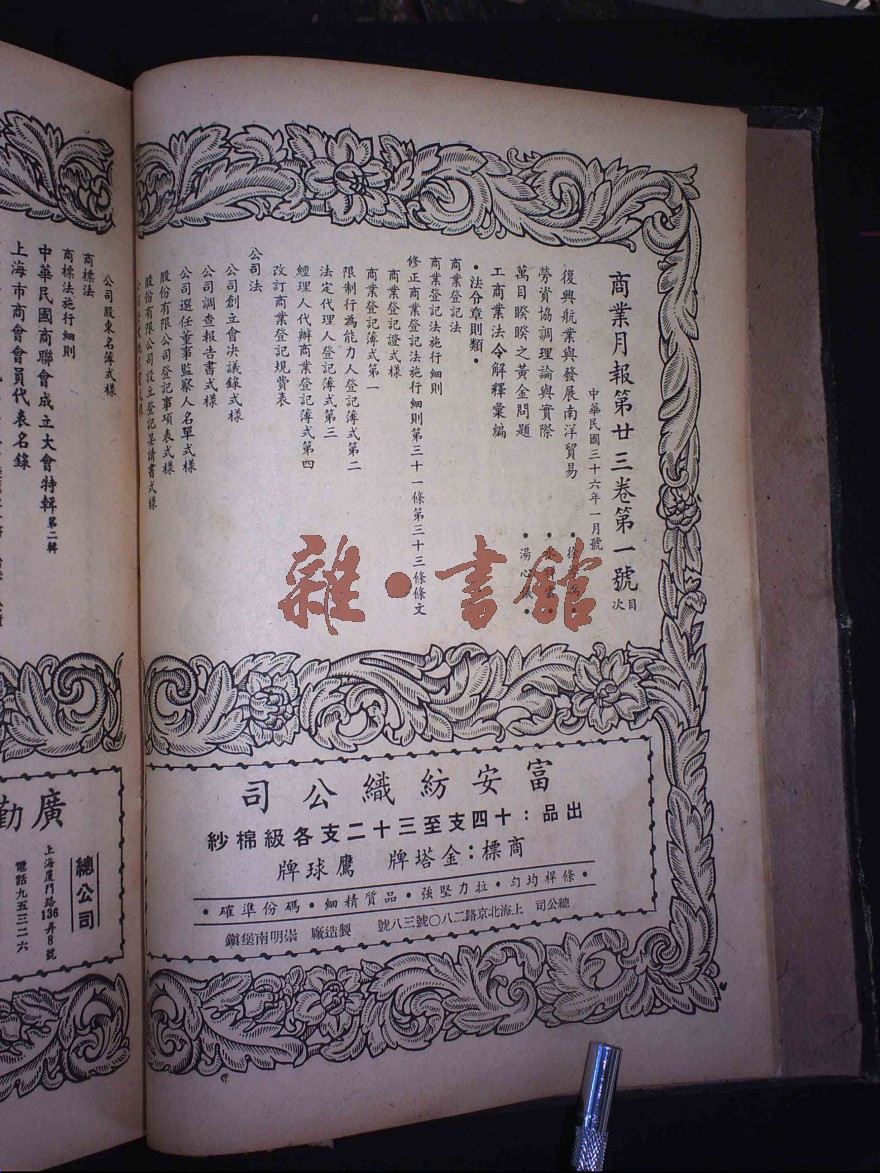 商業月報第廿三卷第一號
目次
中華民國三十六年一月號
復興航業與發展南洋貿易
勞資協調理論與實際
萬目睽睽之黃金問題
湯心
工商業法令解釋彙編
•法令章則類•
商業登記法
商業登記法施行細則
修正商業登記法施行細則第三十一條第三十三條條文
商業登記證式樣
商業登記簿式第一
限制行為能力人登記簿式第二
法定代理人登記簿式第三
經理人代辦商業登記簿式第四
改訂商業登記規費表
公司法
公司創立會決議錄式樣
公司調查報告書式樣
公司選任董事監察人名單式樣
股份有限公司登記事項表式樣
股份有限公司設立登記呈請書式樣
公司股東名簿式樣
商標法
商標法施行細則
中華民國商聯會成立大會特輯第二輯
上海市商會會員代表名錄
雜•書館
富安紡織公司
出品:十四支至三十二支各級棉紗
商標:金塔牌 鷹球牌
•條桿均勻•拉力堅強•品質精細•碼份準確•
總公司 上海北京路二八〇號三八號 製造廠 崇明南堡鎮
廣勤
總公司
上海廈門路136弄8號
電話九五三二六